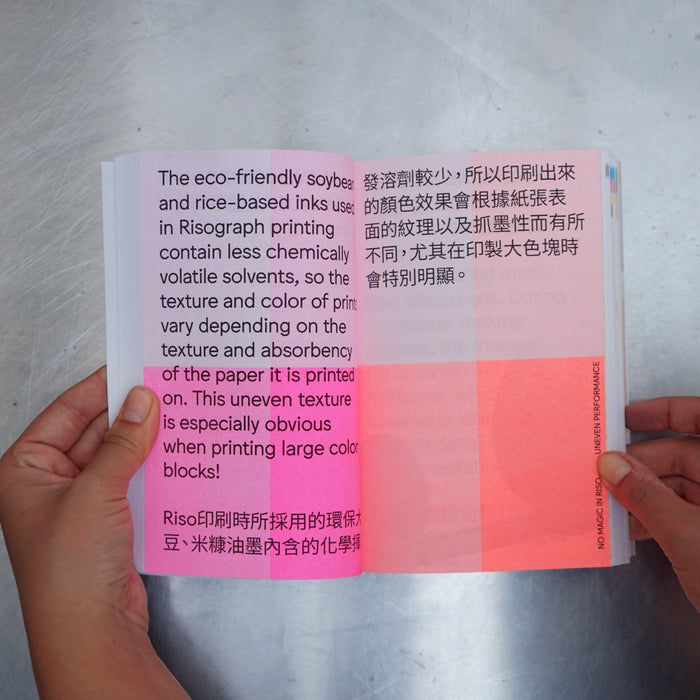 The eco-friendly soybean
and rice-based inks used
in Risograph printing
contain less chemically
volatile solvents, so the
texture and color of prints
vary depending on the
texture and absorbency
of the paper it is printed
on. This uneven texture
is especially obvious
when printing large color
blocks!
Riso印刷時所採用的環保大
豆、米糠油墨內含的化學揮
發溶劑較少，所以印刷出來
的顏色效果會根據紙張表
面的紋理以及抓墨性而有所
不同，尤其在印製大色塊時
會特別明顯。
NO MAGIC IN RISO UNEVEN PERFORMANCE